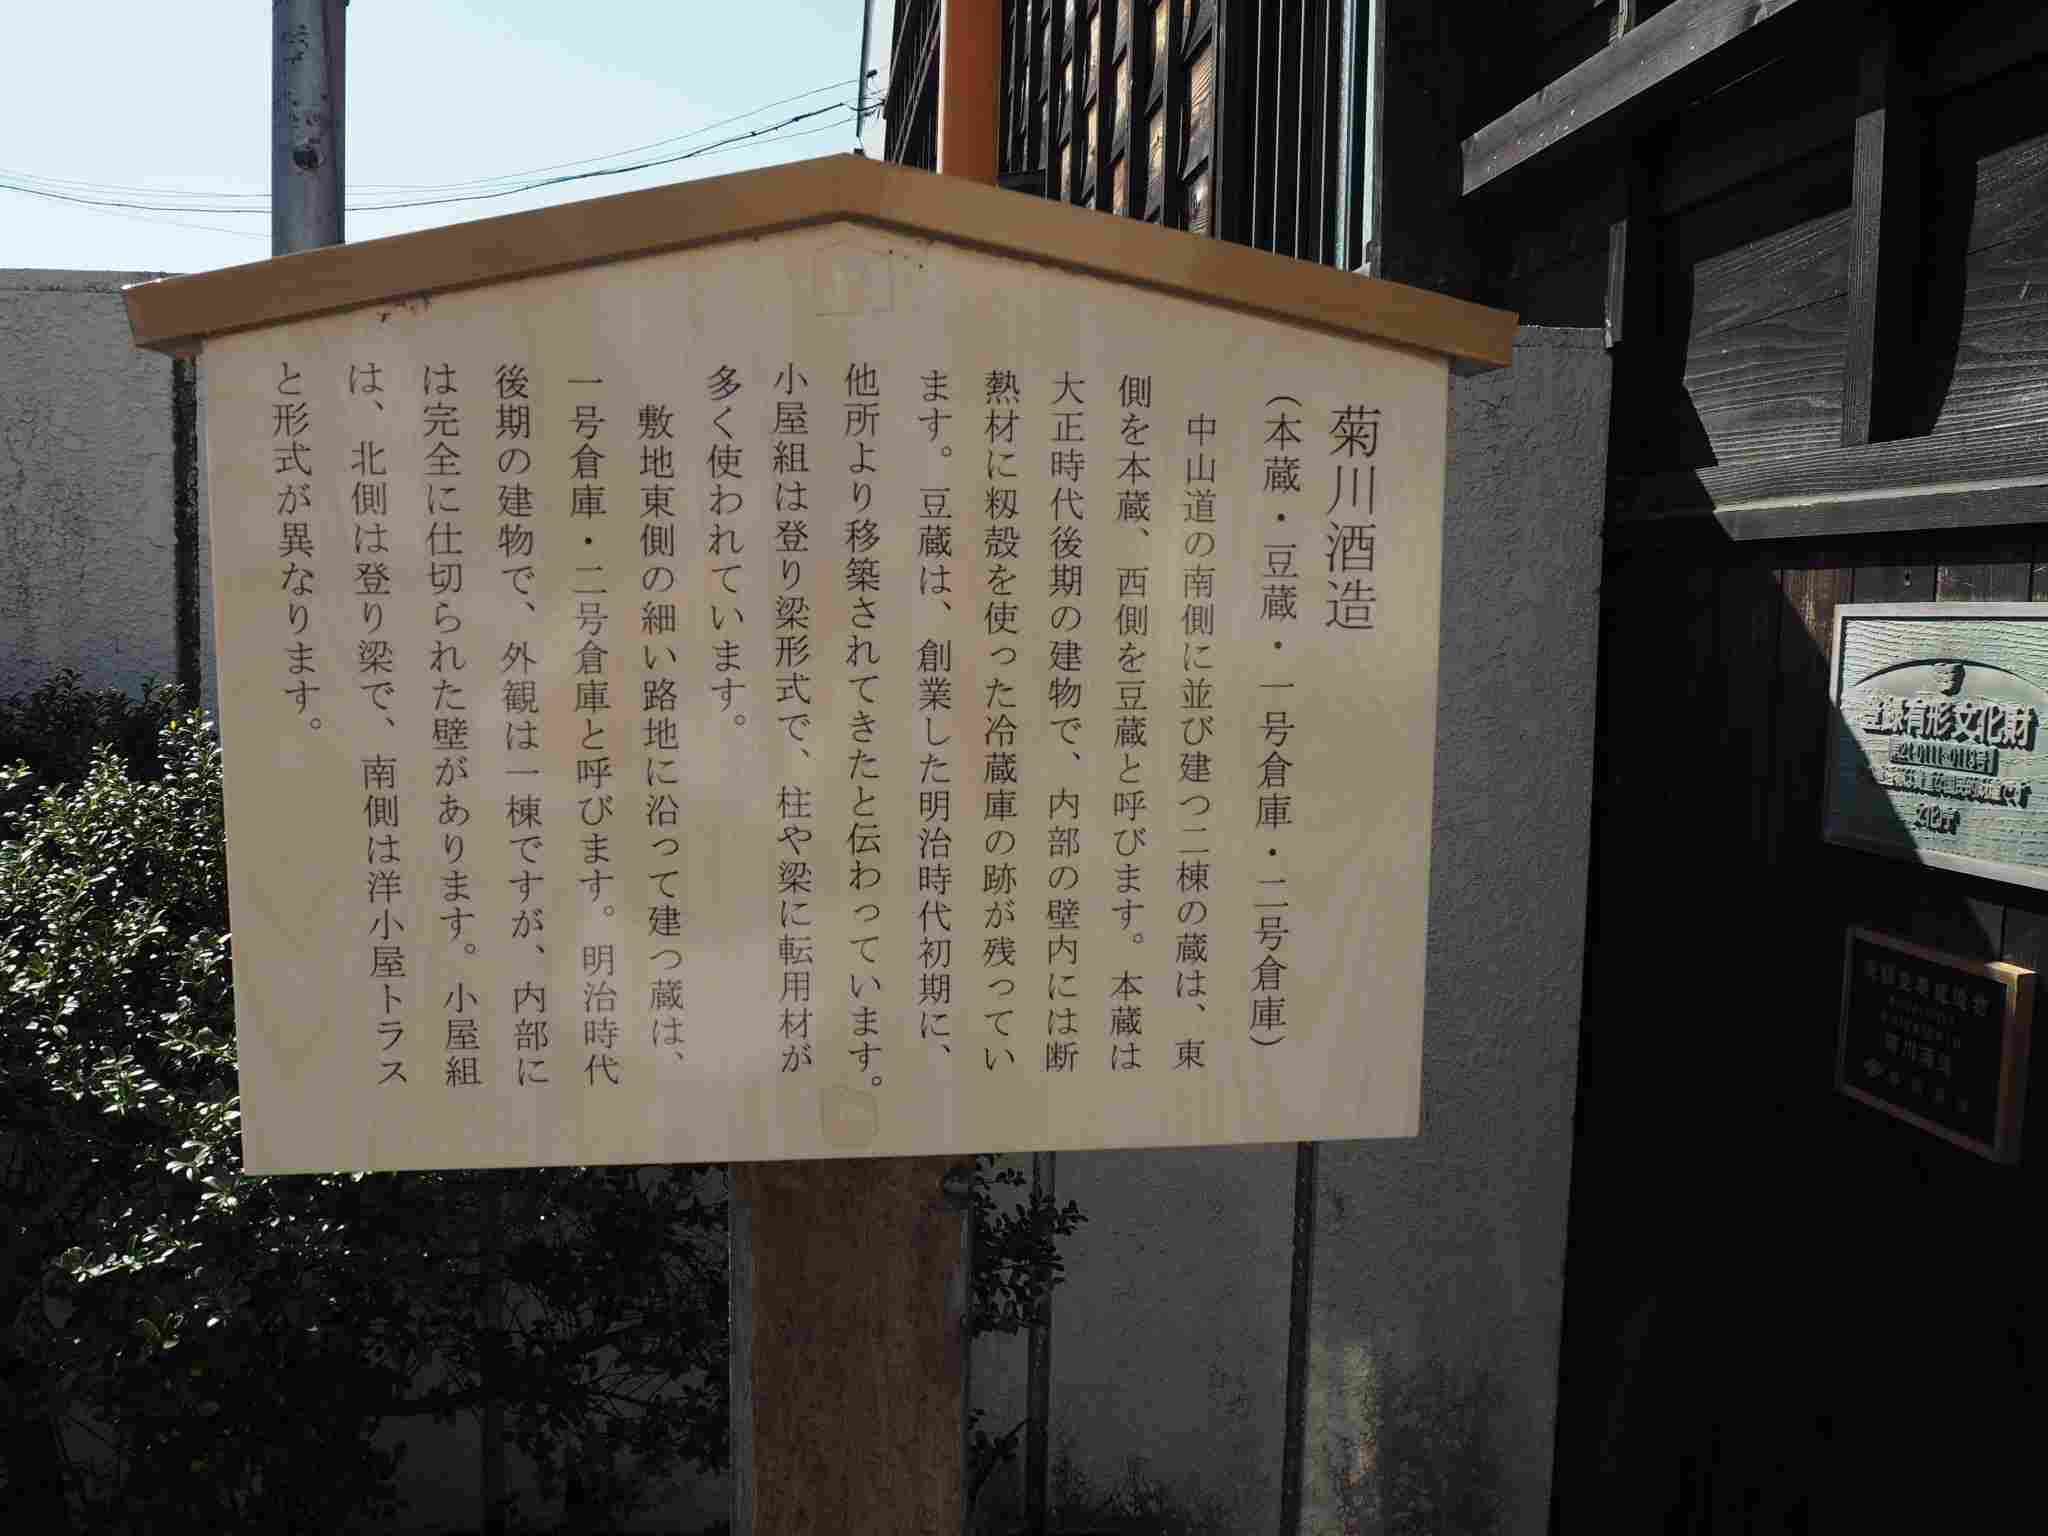 菊川酒造
(本蔵・豆蔵・一号倉庫・二号倉庫)
中山道の南側に並び建つ二棟の蔵は、東
側を本蔵、西側を豆蔵と呼びます。本蔵は
大正時代後期の建物で、内部の壁内には断
熱材に籾殻を使った冷蔵庫の跡が残ってい
ます。豆蔵は、創業した明治時代初期に、
他所より移築されてきたと伝わっています。
小屋組は登り梁形式で、柱や梁に転用材が
多く使われています。
敷地東側の細い路地に沿って建つ蔵は、
一号倉庫・二号倉庫と呼びます。明治時代
後期の建物で、外観は一棟ですが、内部に
は完全に仕切られた壁があります。小屋組
は、北側は登り梁で、南側は洋小屋トラス
と形式が異なります。
登録有形文化財
文化庁